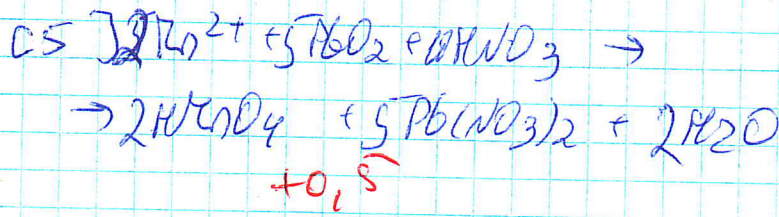 C5 ] 2Mn²⁺ + 5PbO₂ + HNO₃ →
→ 2HMnO₄ + 5Pb(NO₃)₂ + 2H₂O
+0,5